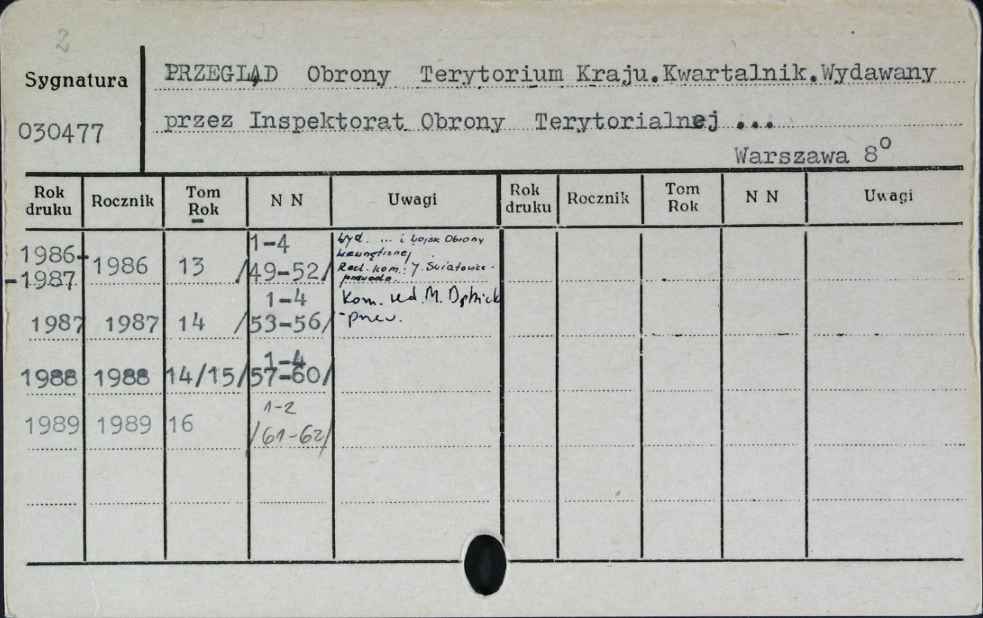 2
Sygnatura
030477
PRZEGLĄD Obrony Terytorium Kraju.Kwartalnik.Wydawany
przez Inspektorat Obrony Terytorialnej ...
Warszawa 8°
Rok druku Rocznik Tom Rok N N Uwagi Rok druku Rocznik Tom Rok N N Uwagi
1986-1987 1986 13 1-4 /49-52/ Wyd. ... i Wojsk Obrony
Wewnętrznej
Red. kom.: J.
1987 1987 14 1-4 /53-56/ Kom. red. M.
1988 1988 14/15 1-4 /57-60/
1989 1989 16 1-2 /61-62/